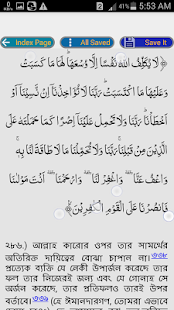 41% 5:53 AM
Index Page All Saved Save It
﴿لَا يُكَلِّفُ اللَّهُ نَفْسًا إِلَّا وُسْعَهَا لَهَا مَا كَسَبَتْ
وَعَلَيْهَا مَا اكْتَسَبَتْ رَبَّنَا لَا تُؤَاخِذْنَا إِنْ نَسِينَا أَوْ
أَخْطَأْنَا رَبَّنَا وَلَا تَحْمِلْ عَلَيْنَا إِصْرًا كَمَا حَمَلْتَهُ عَلَى
الَّذِينَ مِنْ قَبْلِنَا رَبَّنَا وَلَا تُحَمِّلْنَا مَا لَا طَاقَةَ لَنَا بِهِ
وَاعْفُ عَنَّا وَاغْفِرْ لَنَا وَارْحَمْنَا أَنْتَ مَوْلَانَا
فَانْصُرْنَا عَلَى الْقَوْمِ الْكَافِرِينَ﴾
২৮৬.) আল্লাহ কারোর ওপর তার সামর্থের
অতিরিক্ত দায়িত্বের বোঝা চাপান না।
প্রত্যেক ব্যক্তি যে নেকী উপার্জন করেছে তার
ফল তার নিজেরই জন্য এবং যে গোনাহ সে
অর্জন করেছে, তার প্রতিফলও তারই উপর
বর্তাবে। (হে ঈমানদারগণ, তোমরা এভাবে